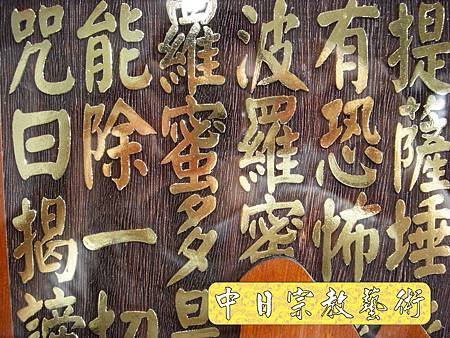 提薩埵
有恐怖
波羅密
羅蜜多是
能除一切
咒曰揭諦
中日宗教藝術